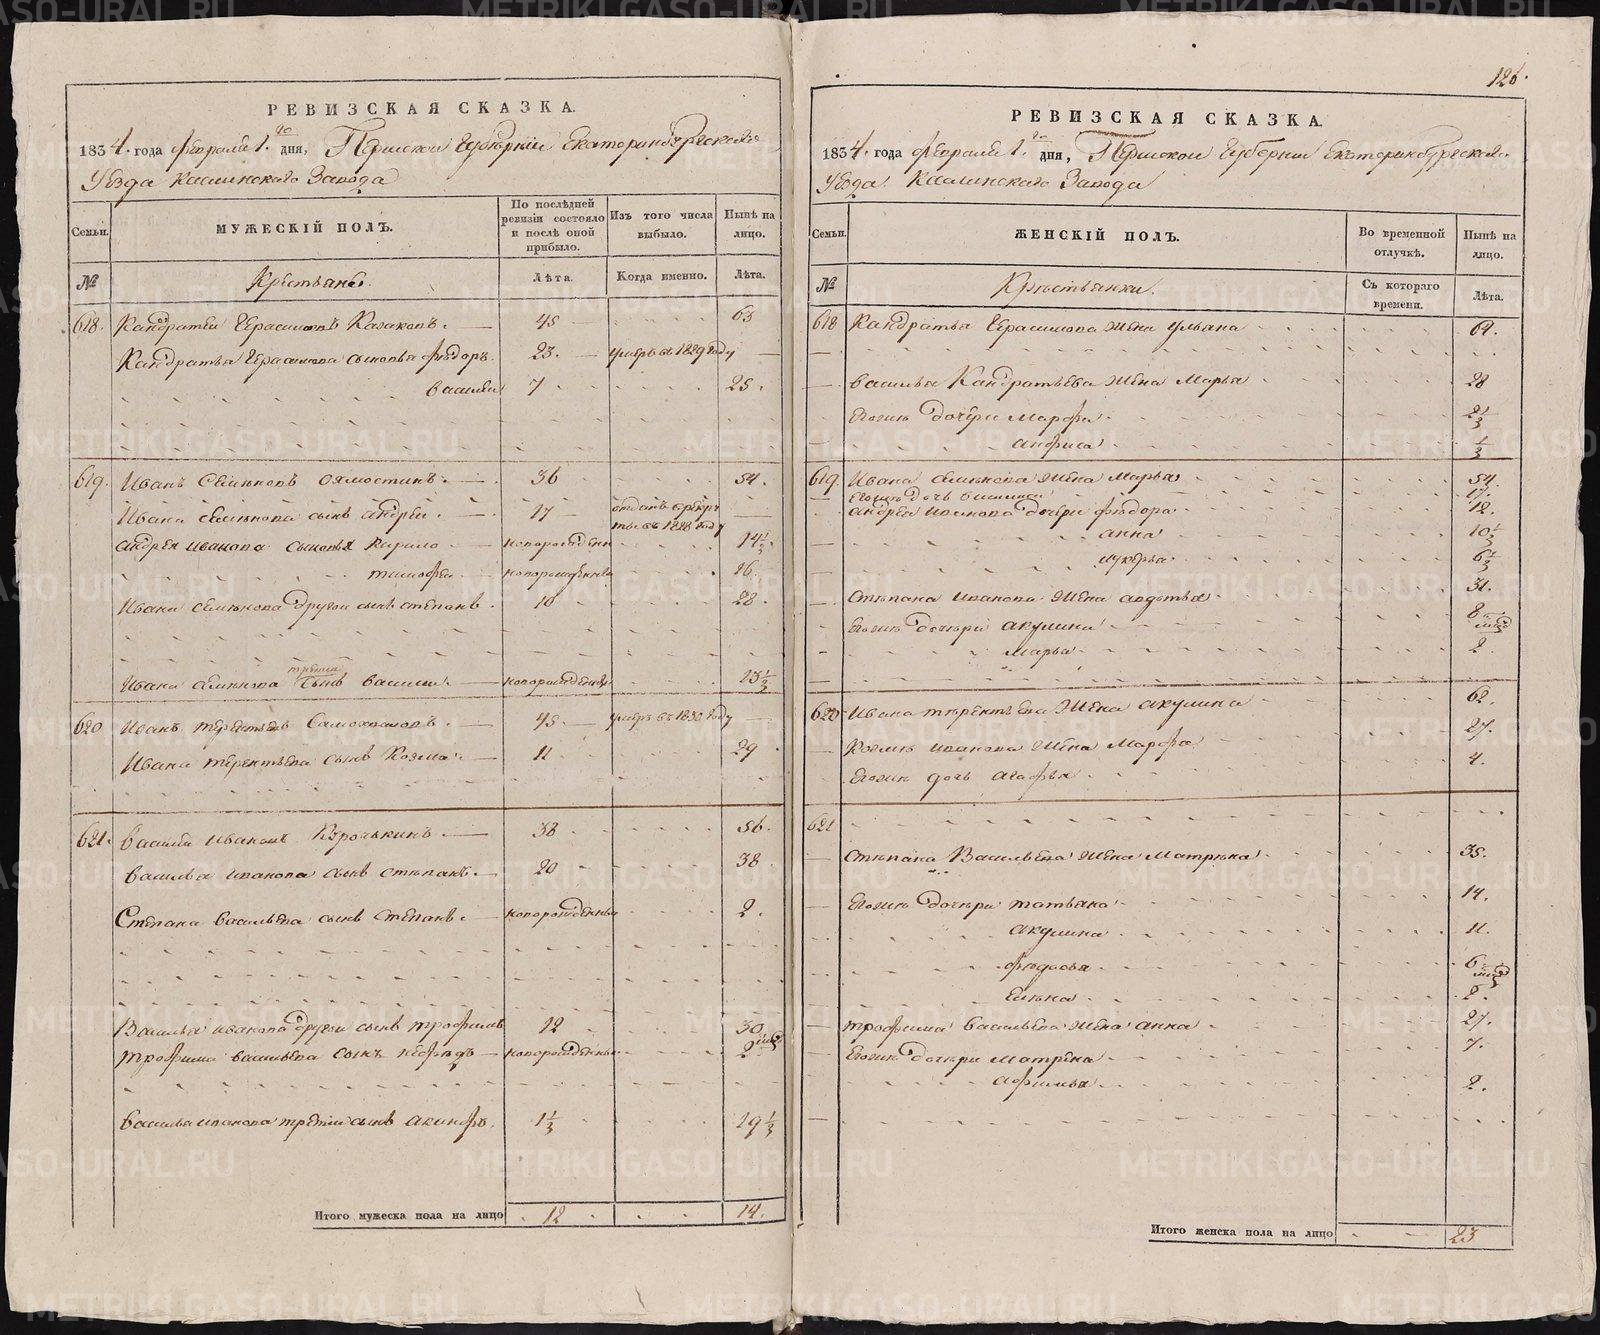 126.
РЕВИЗСКАЯ СКАЗКА.
1834. года февраля 1.го дня, Пермской Губернии Екатеринбургскаго
Уезда Каслинскаго Завода
Семьи.
МУЖЕСКІЙ ПОЛЪ.
По послѣдней ревизіи состояло и послѣ оной прибыло.
Изъ того числа выбыло.
Нынѣ на лицо.
№
Крестьяне.
Лѣта.
Когда именно.
Лѣта.
618. Кандратей Герасимовъ Казаковъ. 45 63
Кандратья Герасимова сыновья федоръ. 23. умеръ въ 1829 году
василей 7 25.
619. Иванъ Семеновъ 36 54.
Ивана семенова сынъ андрей. 17 отданъ в рекруты въ 1828 году
андрея иванова сыновья Кирило новорожденъ 14 1/2
тимофей новорожденъ 16.
Ивана семенова другой сынъ степанъ. 10 28.
Ивана семенова третей сынъ василей. новорожденъ 13 1/2
620 Иванъ терентьевъ 45. умеръ въ 1830 году
Ивана терентьева сынъ Козма. 11 29
621. василей ивановъ Корочкинъ 38 56.
василья иванова сынъ степанъ. 20 38
Степана васильева сынъ степанъ. новорожденъ 2.
Василья иванова другой сынъ трофимъ 12 30
трофима васильева сынъ новорожденъ 2 мѣс
василья иванова третей сынъ 1 1/2 19 1/2
Итого мужеска пола на лицо 12 14.
РЕВИЗСКАЯ СКАЗКА.
1834. года февраля 1.го дня, Пермской Губернии Екатеринбургскаго
Уезда Каслинскаго Завода
Семьи.
ЖЕНСКІЙ ПОЛЪ.
Во временной отлучкѣ.
Нынѣ на лицо.
№
Крестьянки.
Съ котораго времени.
Лѣта.
618 Кандратья Герасимова жена ульяна 64.
василья Кандратьева жена Марья 28
Егоже дочери марфа 2 1/2
анфиса 1/2
619. Ивана семенова жена Марья 54.
Егоже дочь 17.
андрея иванова дочери федора 12.
анна 10 1/2
лукерья 6 1/2
степана иванова жена авдотья 31.
Егоже дочери акулина 8 мѣс
Марья 2
620 Ивана терентьева жена акулина 62.
Козмы иванова жена Марфа 27.
Егоже дочь агафья 4.
621
степана Васильева жена Матрена 35.
Егоже дочери татьяна 14.
акулина 11.
федосья 6 мѣс
Елена 2.
трофима васильева жена анна 27
Егоже дочери матрена 7.
афимья 2.
Итого женска пола на лицо 23